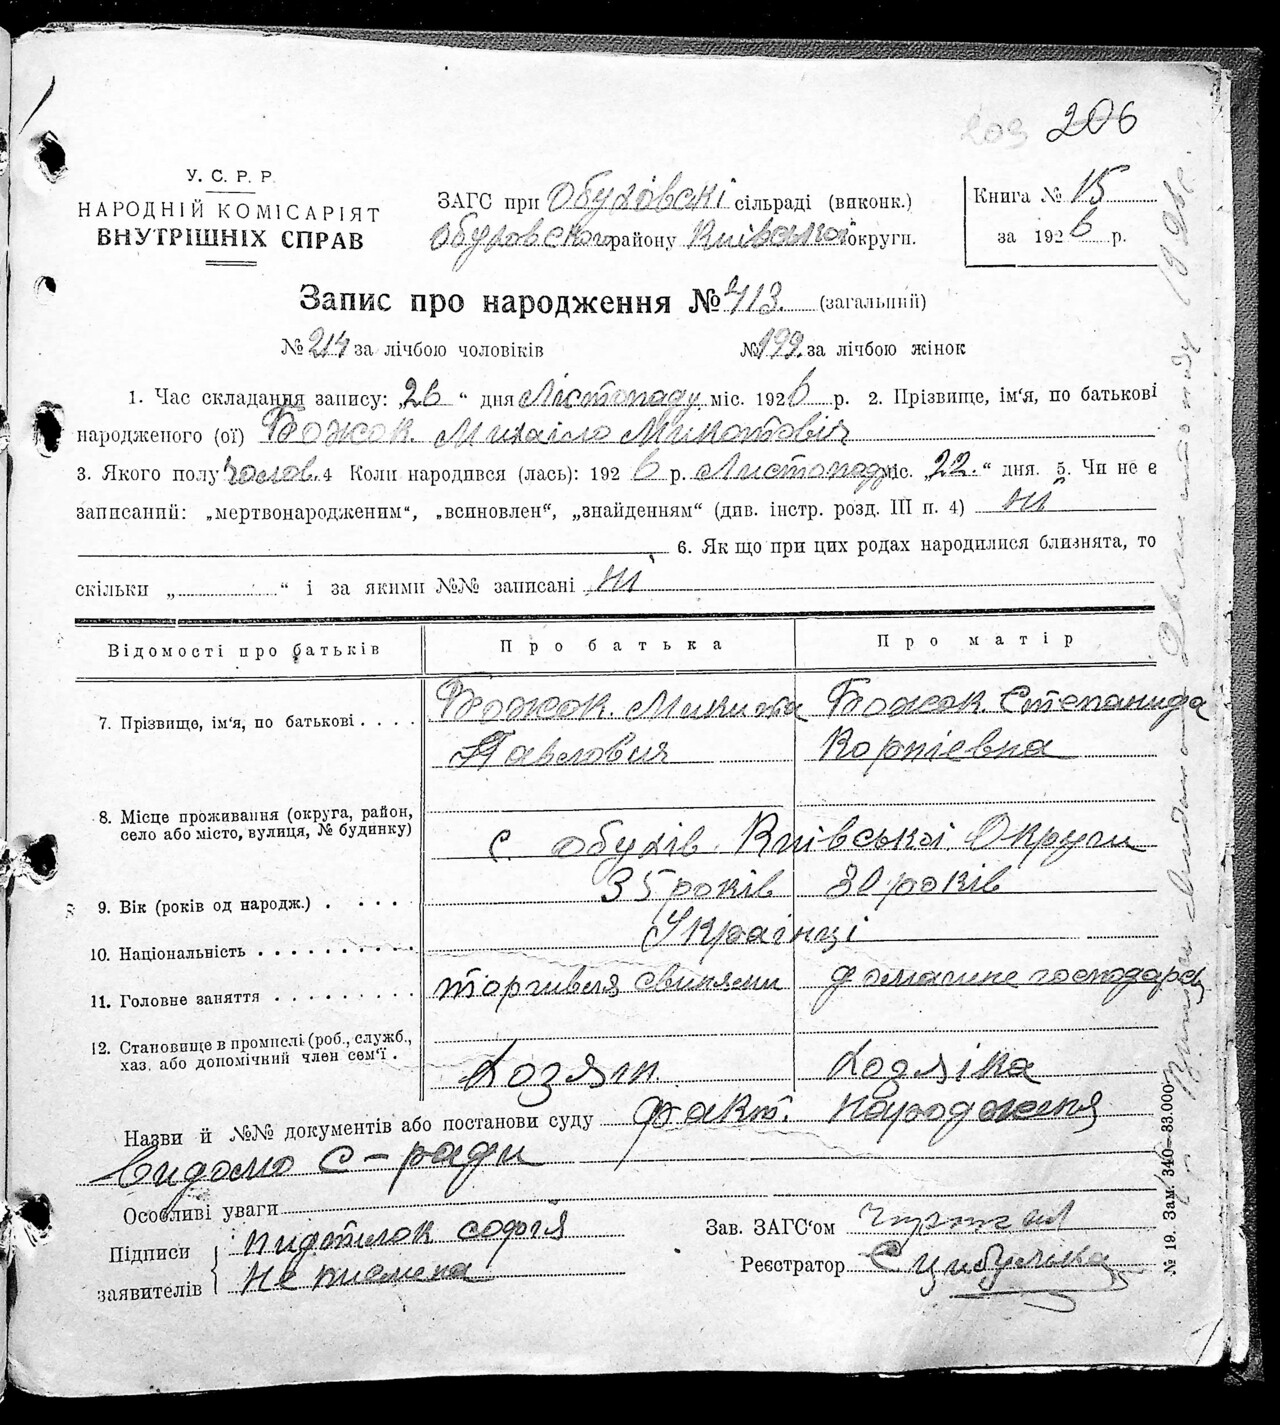 206
203
У. С. Р. Р.
НАРОДНІЙ КОМІСАРІЯТ
ВНУТРІШНІХ СПРАВ
ЗАГС при Обухівскі сільраді (виконк.)
Обуховского району Київської округи.
Книга № 15
за 1926 р.
Запис про народження № 413. (загальний)
№ 214 за лічбою чоловіків № 199. за лічбою жінок
1. Час складання запису: „26“ дня Лістопаду міс. 1926 р. 2. Прізвище, ім'я, по батькові
народженого (ої) Божок. Михаіло Микитович
3. Якого полу Чолов. 4 Коли народився (лась): 1926 р. Листопаду міс. „22.“ дня. 5. Чи не є
записаний: „мертвонародженим“, „всиновлен“, „знайденням“ (див. інстр. розд. III п. 4) ні
6. Як що при цих родах народилися близнята, то
скільки „ “ і за якими №№ записані ні
Відомості про батьків Про батька Про матір
7. Прізвище, ім'я, по батькові . . . . Божок. Микита Божок. Степанида
Павлович Корніевна
8. Місце проживання (округа, район,
село або місто, вулиця, № будинку)
с. Обухів Київської Округи
9. Вік (років од народж.) . . . . . 35 років 30 років
10. Національність . . . . . . . . . . Українці
11. Головне заняття . . . . . . . . . торгивля свинями домашне господарс
12. Становище в промислі (роб., служб.,
хаз. або допоміжний член сем'ї .
Хозяін Хозяіка
Назви й №№ документів або постанови суду факт. народженя
Видомо С-ради
Особливі уваги
Підписи
заявителів
Пидтилок софія
Не писмена
Зав. ЗАГС'ом
Реєстратор С Цибулька
№ 19. Зам. 340—83.000